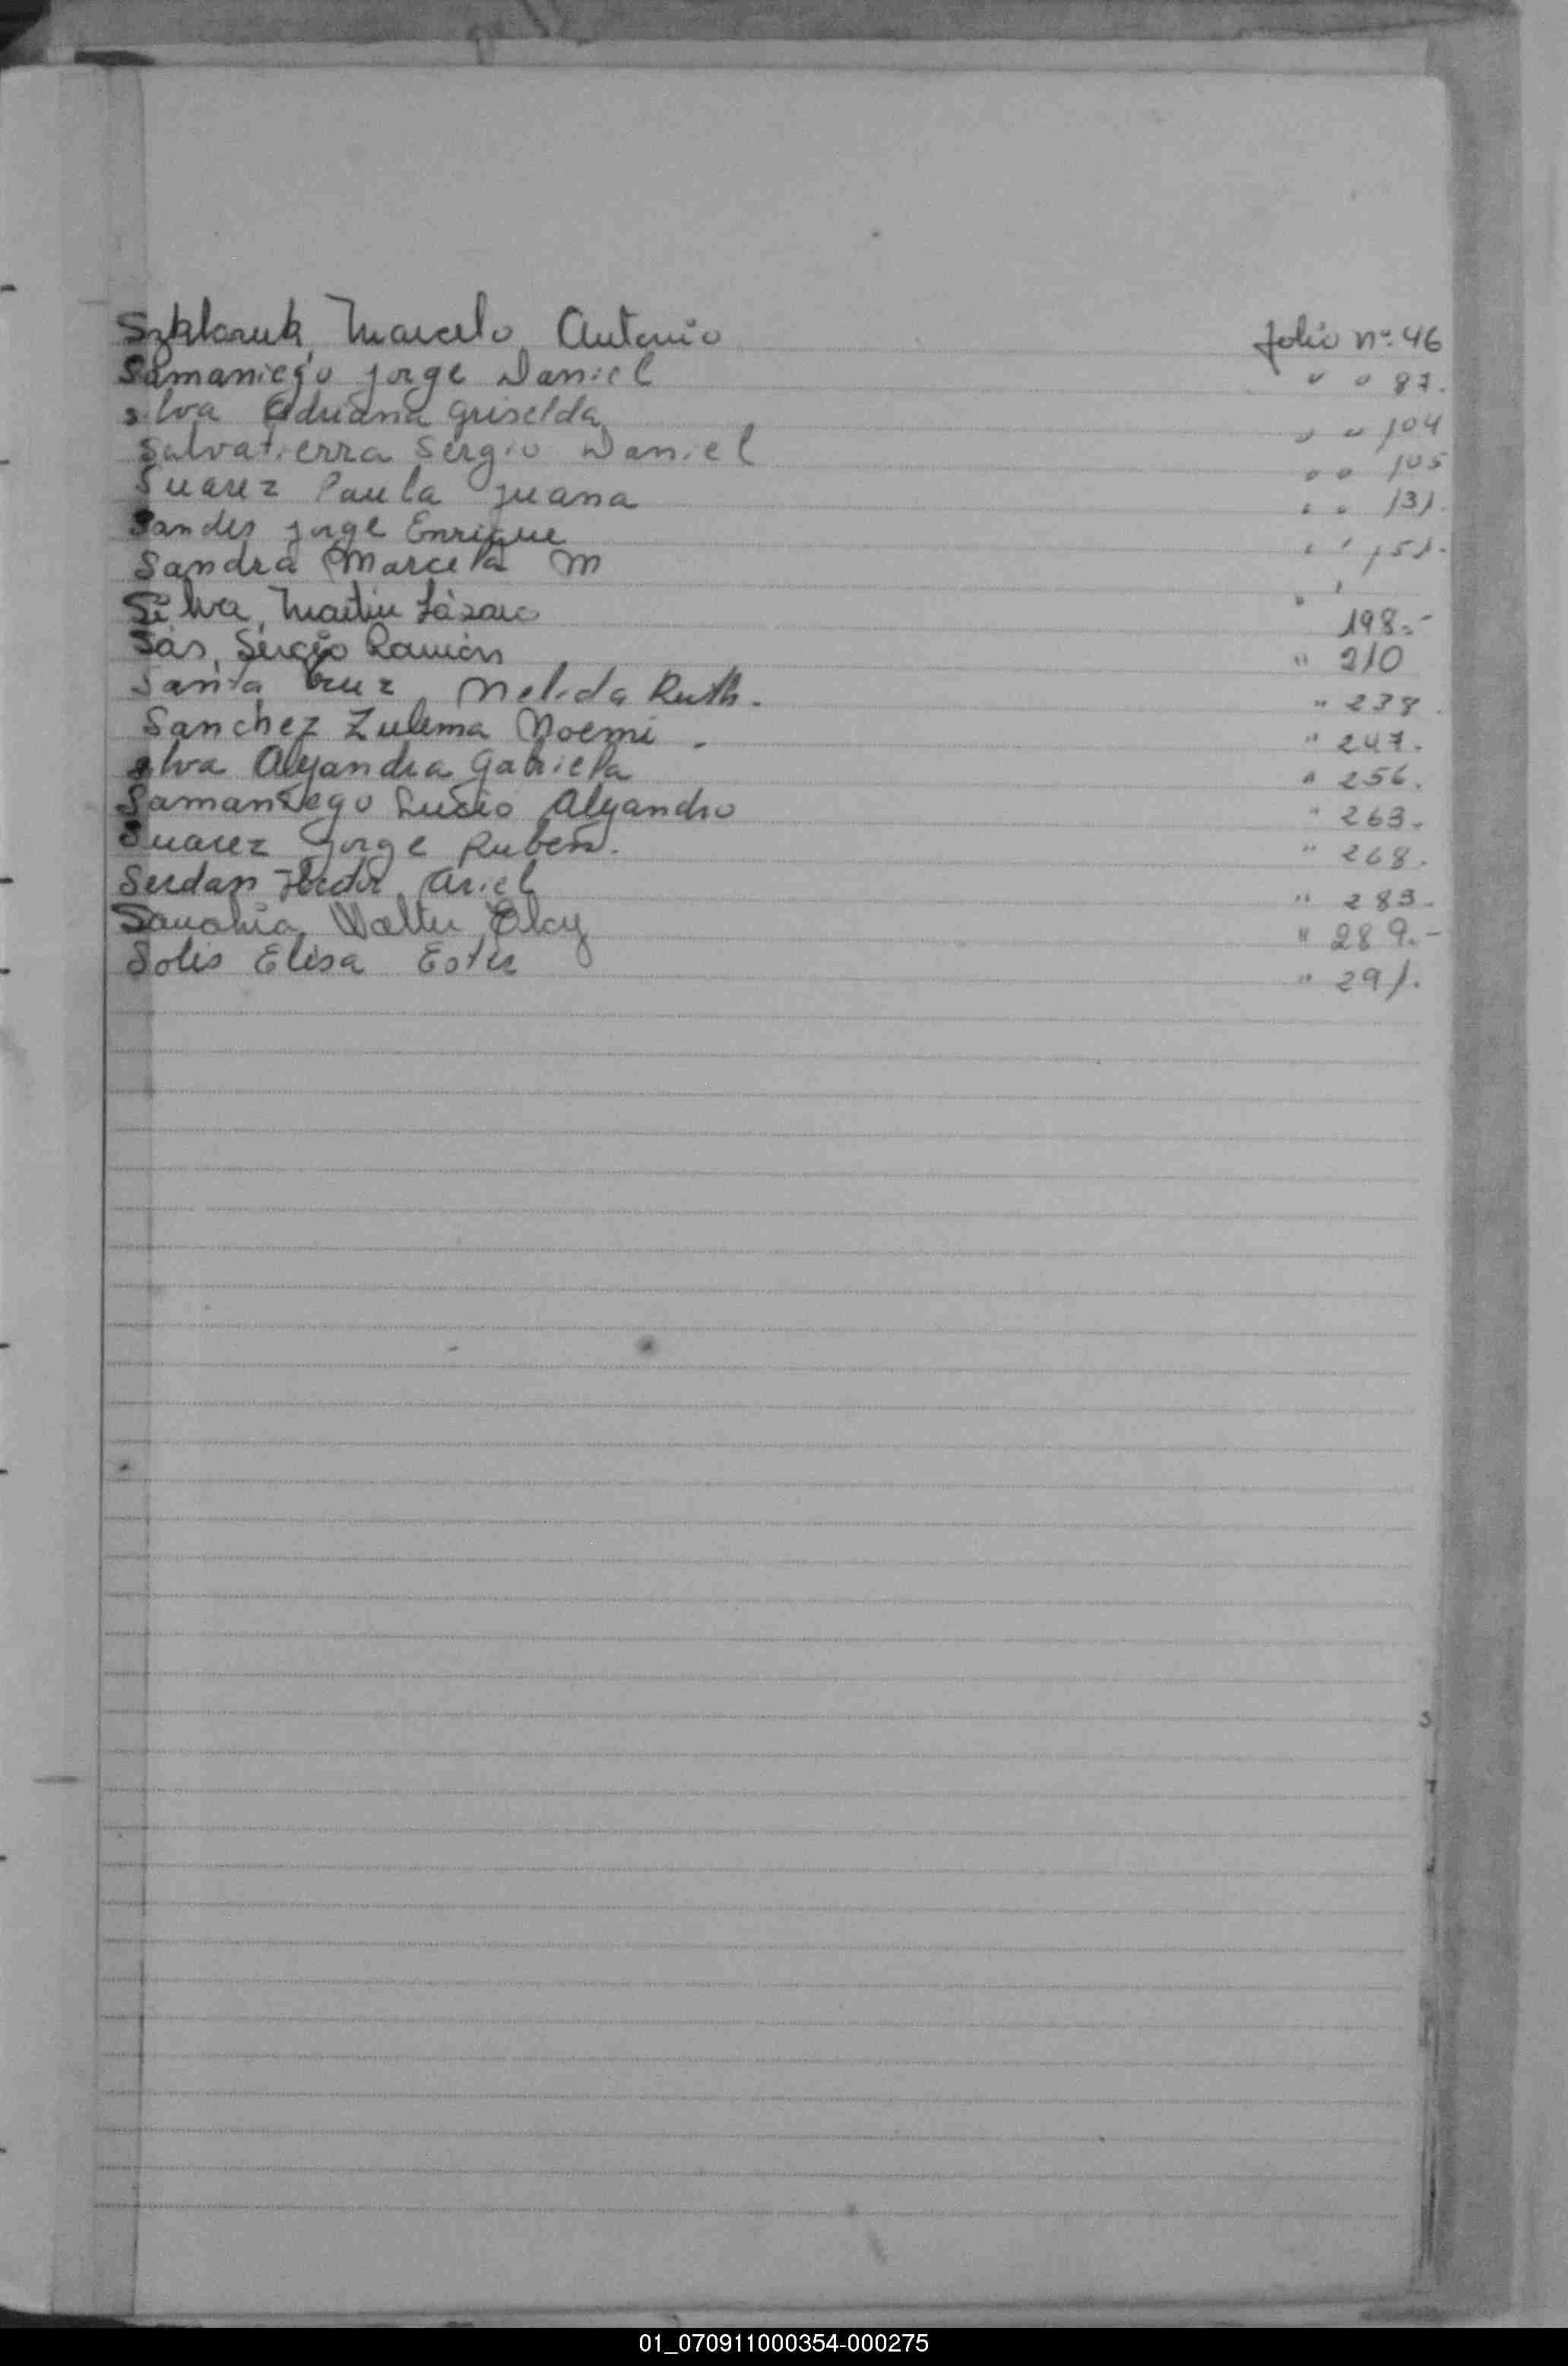 Szklaruk, Marcelo Antonio folio nº 46
Samaniego Jorge Daniel " " 87.
Silva Adriana Griselda " " 104
Salvatierra Sergio Daniel " " 105
Suarez Paula Juana " " 131.
Sandes Jorge Enrique " " 151.
Sandra Marcela M " "
Silva, Martin Lázaro 198.-
Sás, Sergio Ramón " 210
Santa Cruz Nelida Ruth. " 238.
Sanchez Zulema Noemi. " 247.
Silva Alejandra Gabriela " 256.
Samaniego Lucio Alejandro " 263.
Suarez Jorge Ruben. " 268.
Serdan Hector Ariel " 283.
Sanabria Walter Eloy " 289.-
Solis Elisa Ester " 291.
01_070911000354-000275